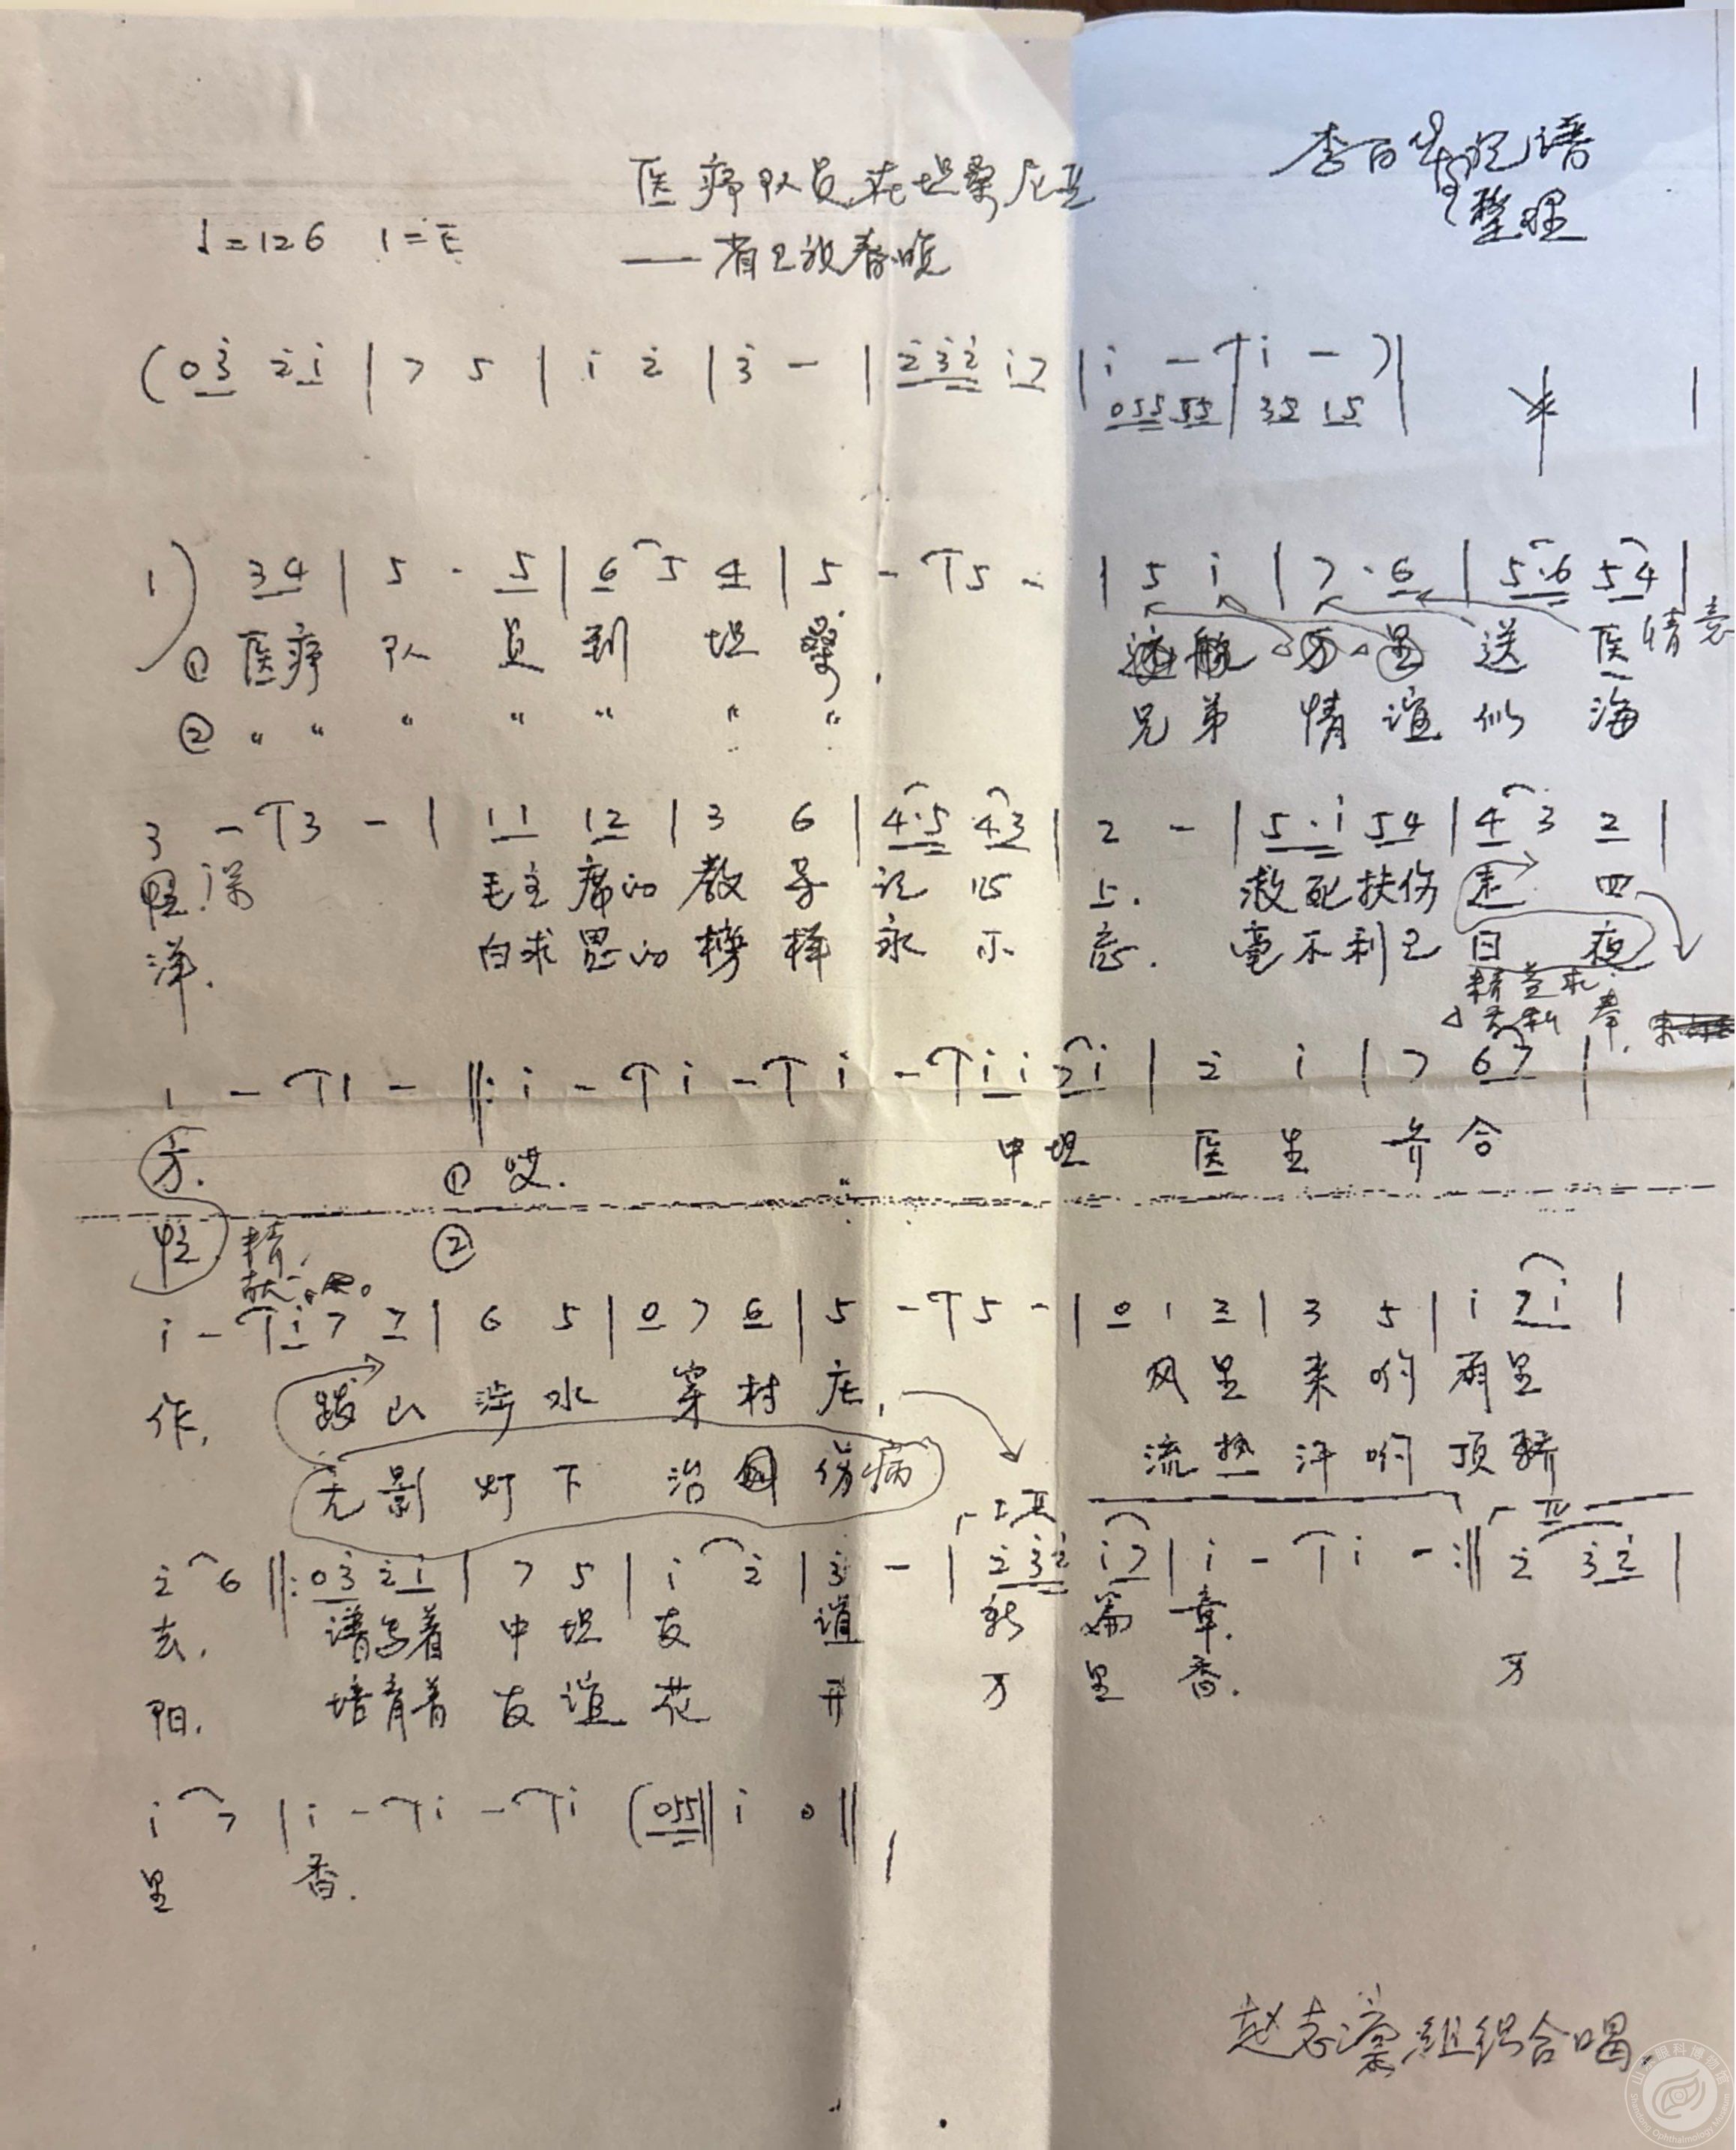 医疗队员在坦桑尼亚
李百 记谱
整理
♩=126 1=E
——省卫放春晚
(03̇ 2̇1̇ | 7 5 | 1̇ 2̇ | 3̇ - | 2̇3̇2̇ 1̇7 | 1̇ - | 1̇ - ) |
055 55 | 35 15 |
1) 34 | 5 · 5 | 6 5 4 | 5 - | 5 - | 5 1̇ | 7 · 6 | 5·6 54 |
① 医疗 队 员 到 坦 桑. 远 航 万 里 送 医 情意
② 〃 〃 〃 〃 〃 〃 〃 兄 弟 情 谊 似 海
3 - | 3 - | 11 12 | 3 6 | 4·5 43 | 2 - | 5·1̇ 54 | 4 3 2 |
深 毛主席的教导记心上. 救死扶伤走四
洋. 白求恩的榜样永不忘. 毫不利己日夜
精益求
无私奉.
1 - | 1 - ‖: 1̇ - | 1̇ - | 1̇ - | 1̇1̇ 71̇ | 2̇ 1̇ | 7 67 |
方. ① 哎. 中坦 医生齐合
忙 精. ②
1̇ - | 1̇ 7 7 | 6 5 | 0 7 6 | 5 - | 5 - | 0 1 2 | 3 5 | 1̇ 71̇ |
作, 跋山涉水 穿村庄, 风里来哟雨里
无影灯下 治伤病 流热汗哟顶骄
2̇ 6 ‖: 03̇ 2̇1̇ | 7 5 | 1̇ 2̇ | 3̇ - | 2̇3̇2̇ 1̇7 | 1̇ - | 1̇ - :‖ 2̇ 3̇2̇ |
去, 谱写着 中坦友谊 新篇章.
阳. 培育着 友谊花开 万里香. 万
1̇ 7 | 1̇ - | 1̇ - | 1̇ (055 ‖ 1̇ 0 ‖
里 香.
赵志濛组织合唱.
山东眼科博物馆
Shandong Ophthalmology Museum